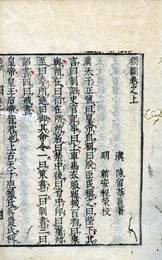 獨斷卷之上
漢 陳留蔡邕著
明 新安程榮校
漢天子正號曰皇帝自稱曰朕臣民稱之曰陛下其
言曰制詔史官記事曰上車馬衣服器械百物曰乘
輿所在曰行在所所居曰禁中後曰省中印曰璽所
至曰幸所進曰御其命令一曰策書二曰制書三曰
詔書四曰戒書